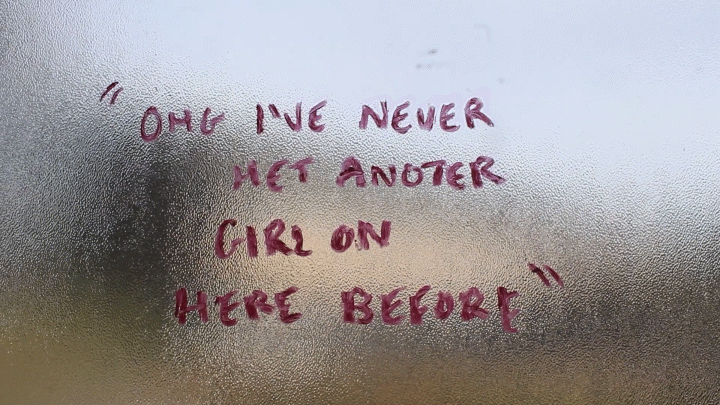 "OMG I'VE NEVER
MET ANOTER
GIRL ON
HERE BEFORE"